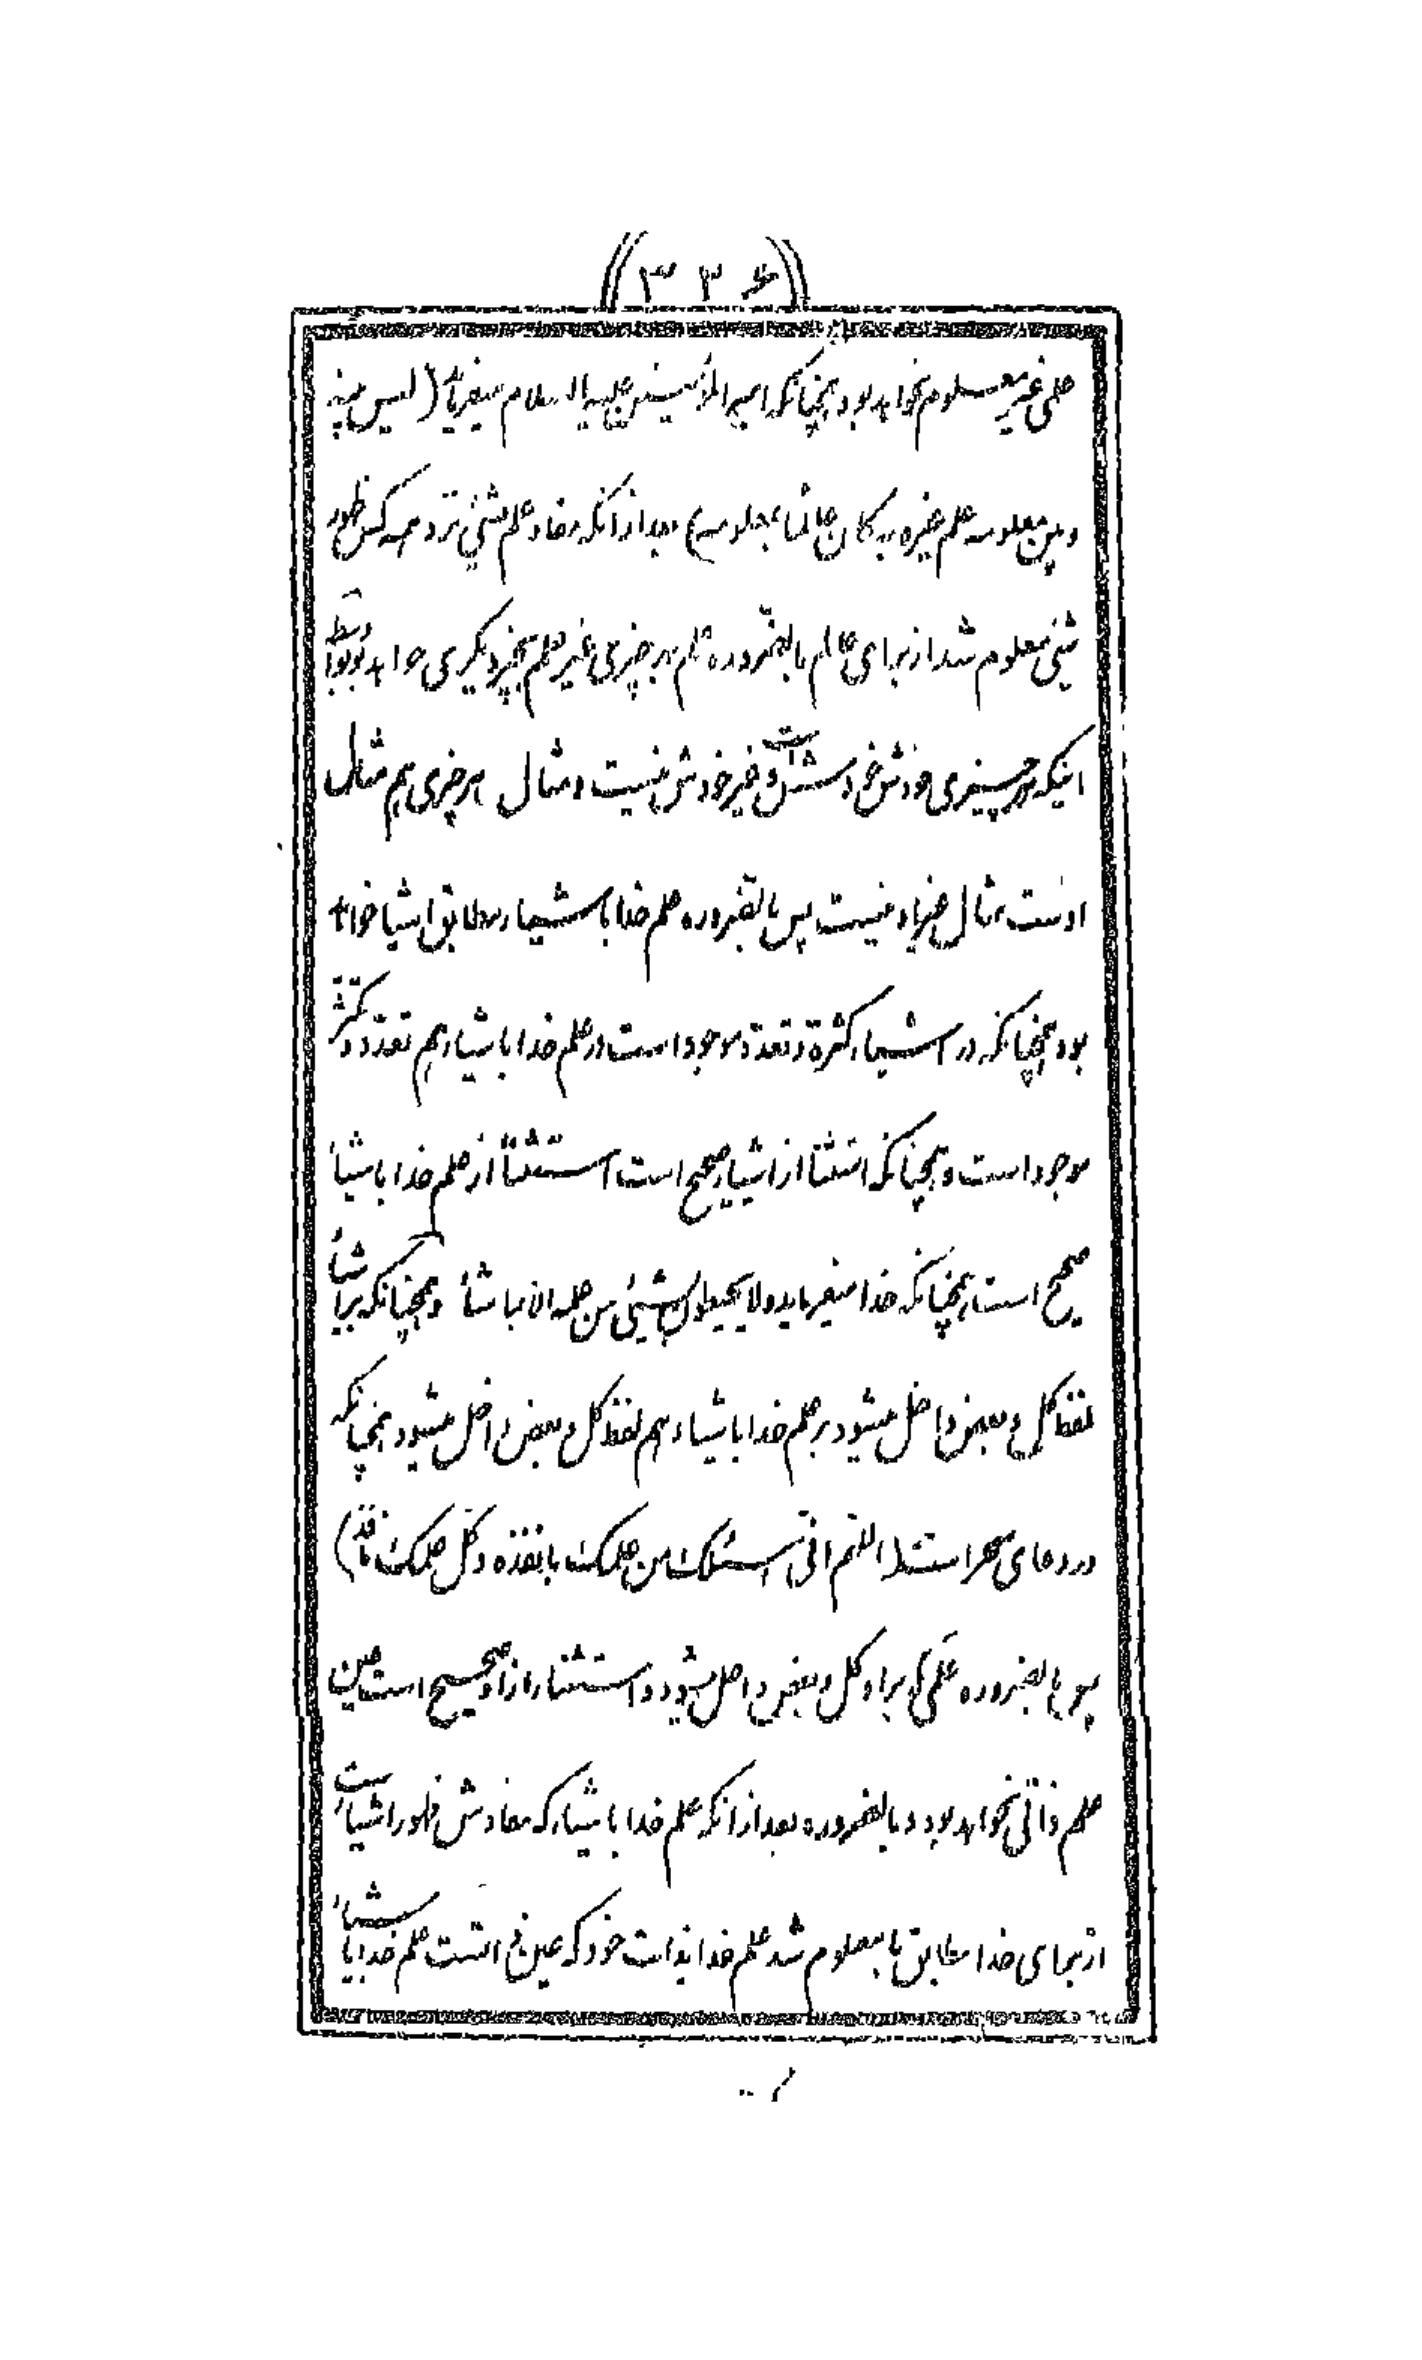 ((۳۳۶))
علمی غیر معلوم نخواهد بود همچنانکه امیر المؤمنین علیه السلام میفرماید (لیس بینه
و بین معلومه علم غیره به کان عالما بمعلومه) بعد از آنکه مفاد علم بشئی نزد همه کس ظهور
شئی معلوم شد از برای عالم بالضروره علم بهر چیزی غیر علم بچیز دیگری خواهد بود بواسطه
اینکه هر چیزی خودش خودش است و غیر خودش نیست و مثال هر چیزی هم مثال
اوست مثال غیر او نیست پس بالضروره علم خدا باشیاء مطابق اشیا خواهد
بود همچنانکه در اشیاء کثرة و تعدد موجود است در علم خدا باشیاء هم تعدد و کثرة
موجود است و همچنانکه استثنا از اشیاء صحیح است استثنا از علم خدا باشیاء
صحیح است همچنانکه خدا میفرماید و لا یحیطون بشیئی من علمه الا بما شاء و همچنانکه بر اشیاء
لفظ کل و بعض داخل میشود بر علم خدا باشیاء هم لفظ کل و بعض داخل میشود همچنانکه
در دعای سحر است (اللهم انی اسئلک من علمک بانفذه و کل علمک نافذ)
پس بالضروره علمی که بر او کل و بعض داخل میشود و استثناء از او صحیح است عین
علم ذاتی نخواهد بود و بالضروره بعد از آنکه علم خدا باشیاء که مفادش ظهور اشیاء است
از برای خدا مطابق با معلوم شد علم خدا بذات خود که عین ذاتست علم خدا باشیاء